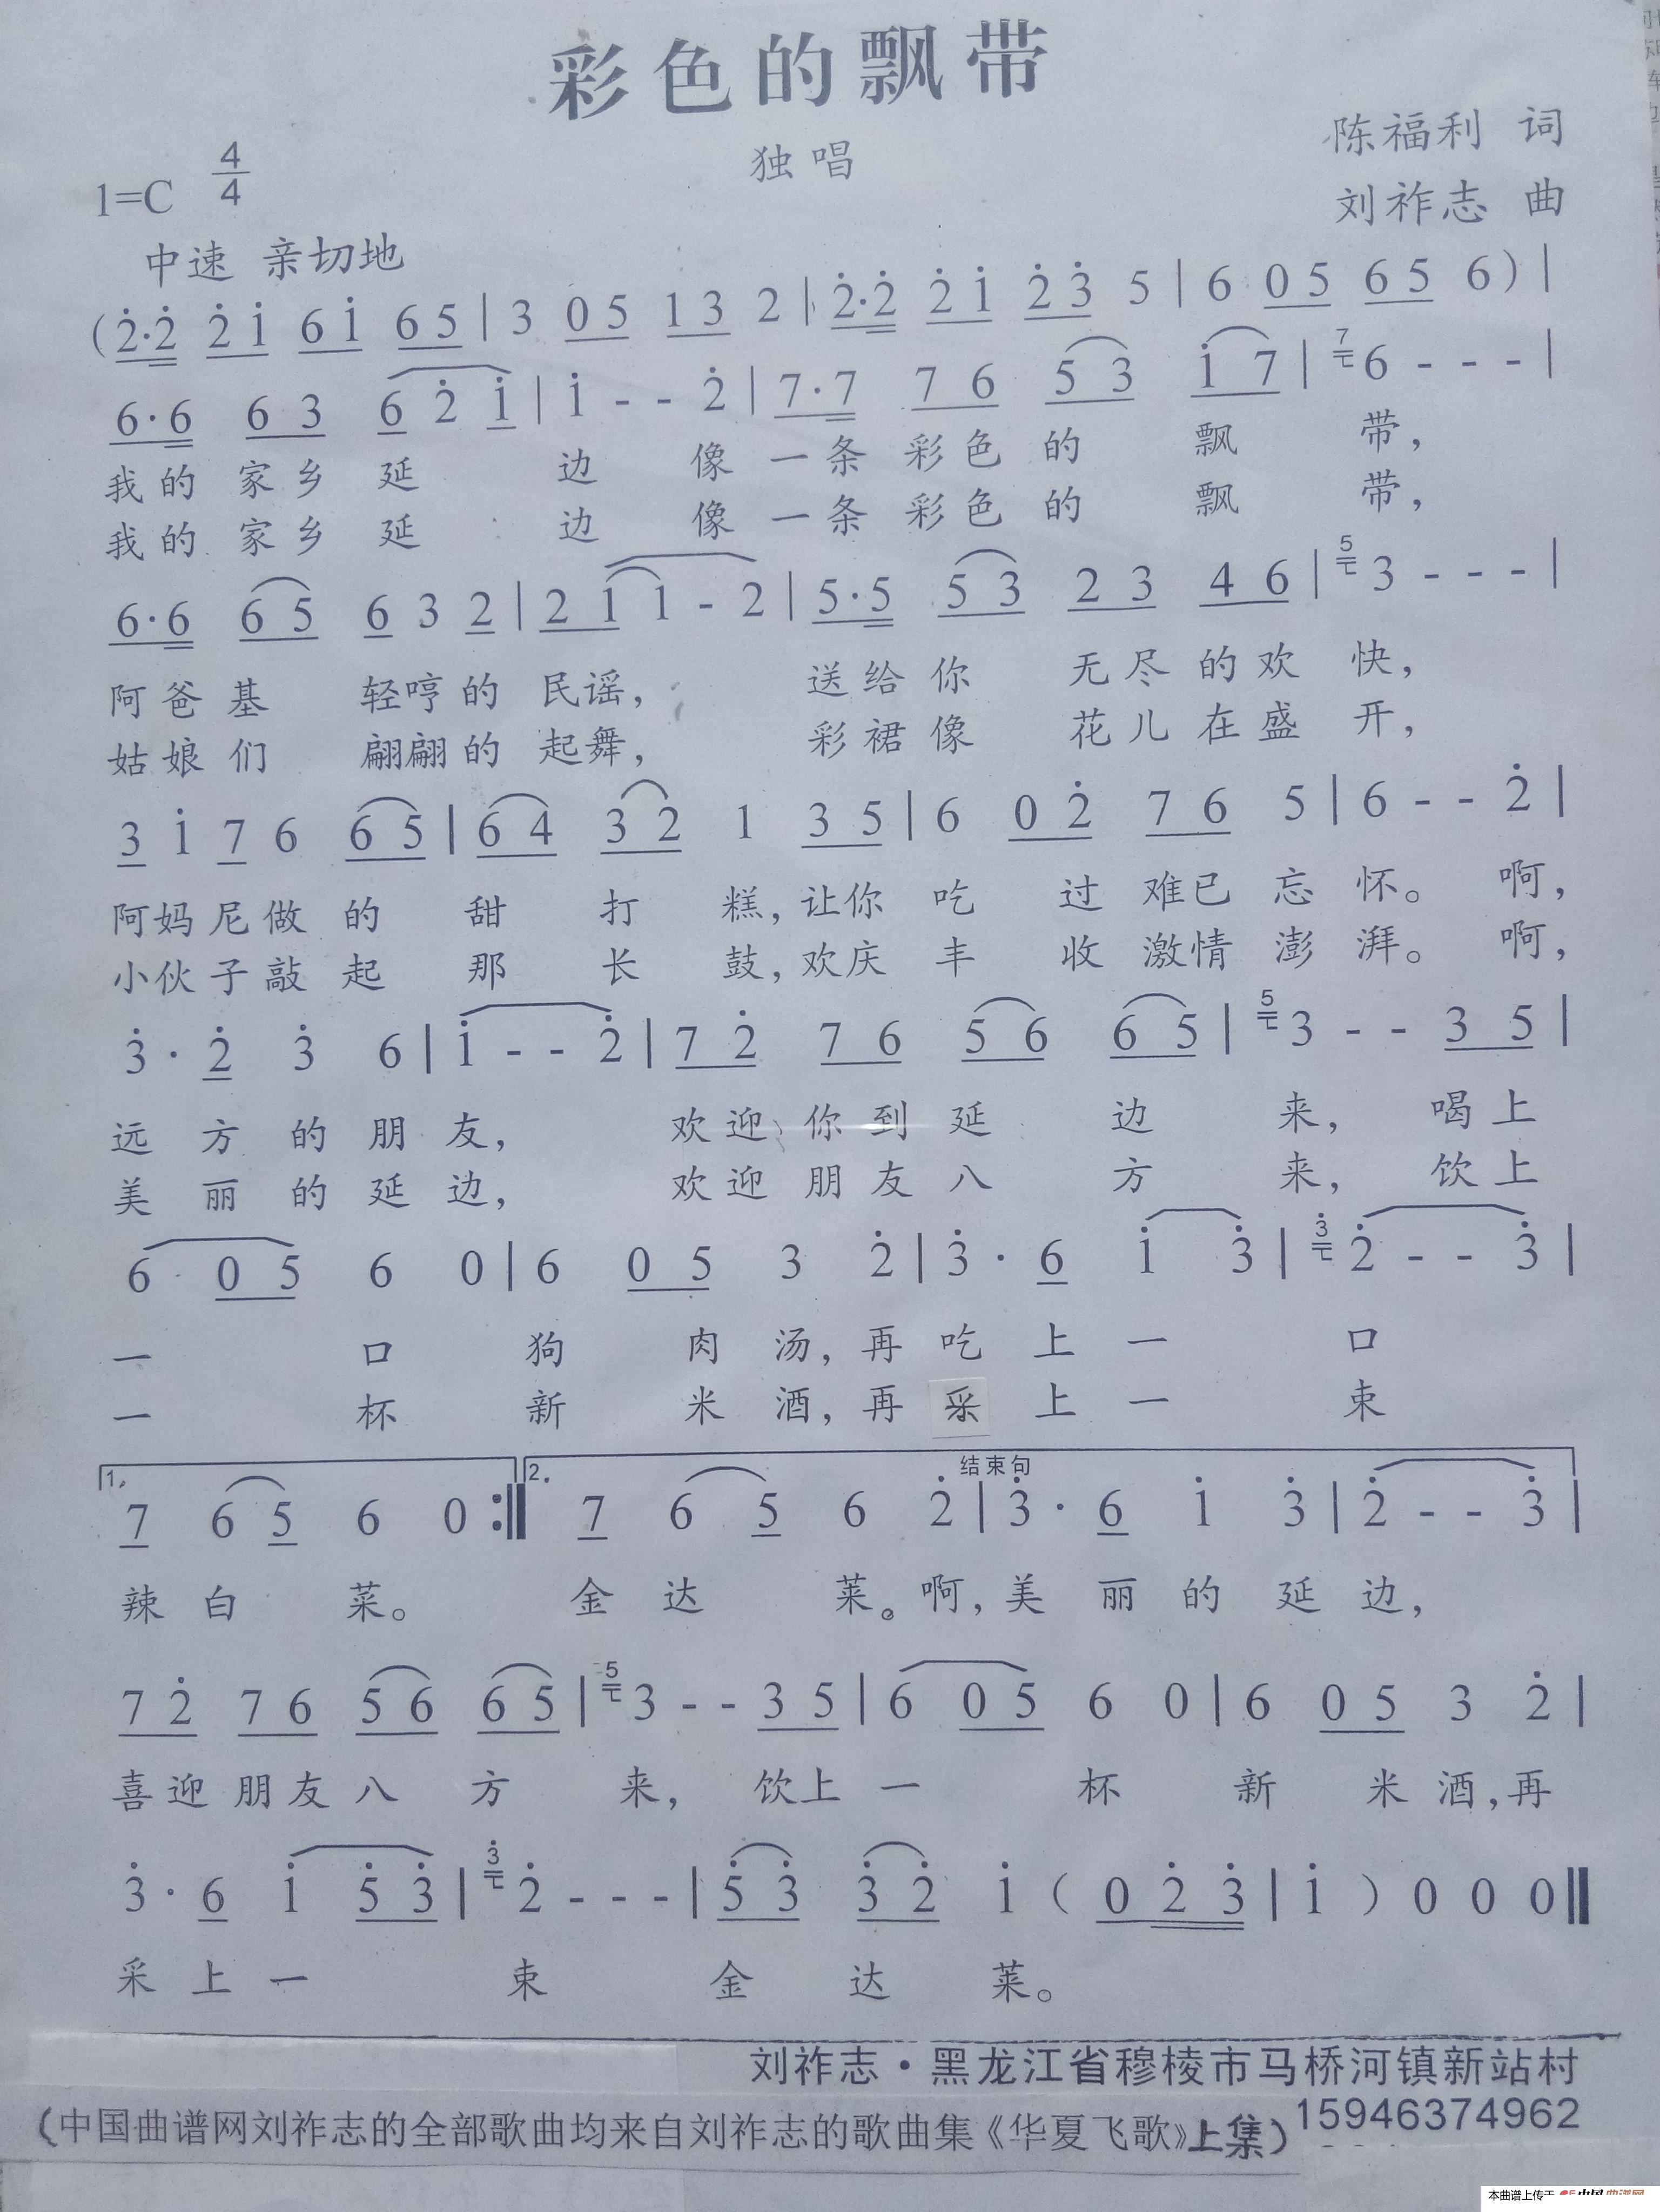 彩色的飘带
独唱
陈福利 词
刘祚志 曲
1=C 4/4
中速 亲切地
(2̇·2̇ 2̇ 1̇ 6 1̇ 6 5 | 3 0 5 1 3 2 | 2̇·2̇ 2̇ 1̇ 2̇ 3̇ 5 | 6 0 5 6 5 6) |
6·6 6 3 6 2̇ 1̇ | 1̇ - - 2̇ | 7·7 7 6 5 3 1̇ 7 | 7 6 - - - |
我的 家乡 延 边 像 一条 彩色 的 飘 带,
我的 家乡 延 边 像 一条 彩色 的 飘 带,
6·6 6 5 6 3 2 | 2 1 1 - 2 | 5·5 5 3 2 3 4 6 | 5 3 - - - |
阿爸基 轻哼的 民谣, 送给你 无尽的欢 快,
姑娘们 翩翩的 起舞, 彩裙像 花儿在盛 开,
3 1̇ 7 6 6 5 | 6 4 3 2 1 3 5 | 6 0 2̇ 7 6 5 | 6 - - 2̇ |
阿妈尼做 的 甜 打 糕, 让你 吃 过 难已 忘 怀。 啊,
小伙子敲 起 那 长 鼓, 欢庆 丰 收 激情 澎 湃。 啊,
3̇ · 2̇ 3̇ 6 | 1̇ - - 2̇ | 7 2̇ 7 6 5 6 6 5 | 5 3 - - 3 5 |
远 方 的 朋 友, 欢迎 你到 延 边 来, 喝上
美 丽 的 延 边, 欢迎 朋友 八 方 来, 饮上
6 0 5 6 0 | 6 0 5 3 2̇ | 3̇ · 6 1̇ 3̇ | 3̇ 2̇ - - 3̇ |
一 口 狗 肉 汤, 再 吃 上 一 口
一 杯 新 米 酒, 再 采 上 一 束
1. 2. 结束句
7 6 5 6 0 :‖ 7 6 5 6 2̇ | 3̇ · 6 1̇ 3̇ | 2̇ - - 3̇ |
辣 白 菜。 金 达 莱。 啊, 美 丽 的 延 边,
7 2̇ 7 6 5 6 6 5 | 5 3 - - 3 5 | 6 0 5 6 0 | 6 0 5 3 2̇ |
喜迎 朋友 八 方 来, 饮上 一 杯 新 米 酒, 再
3̇ · 6 1̇ 5̇ 3̇ | 3̇ 2̇ - - - | 5̇ 3̇ 3̇ 2̇ 1̇ ( 0 2̇ 3̇ | 1̇ ) 0 0 0 ‖
采 上 一 束 金 达 莱。
刘祚志·黑龙江省穆棱市马桥河镇新站村
(中国曲谱网刘祚志的全部歌曲均来自刘祚志的歌曲集《华夏飞歌》上集) 15946374962
本曲谱上传于 中国曲谱网